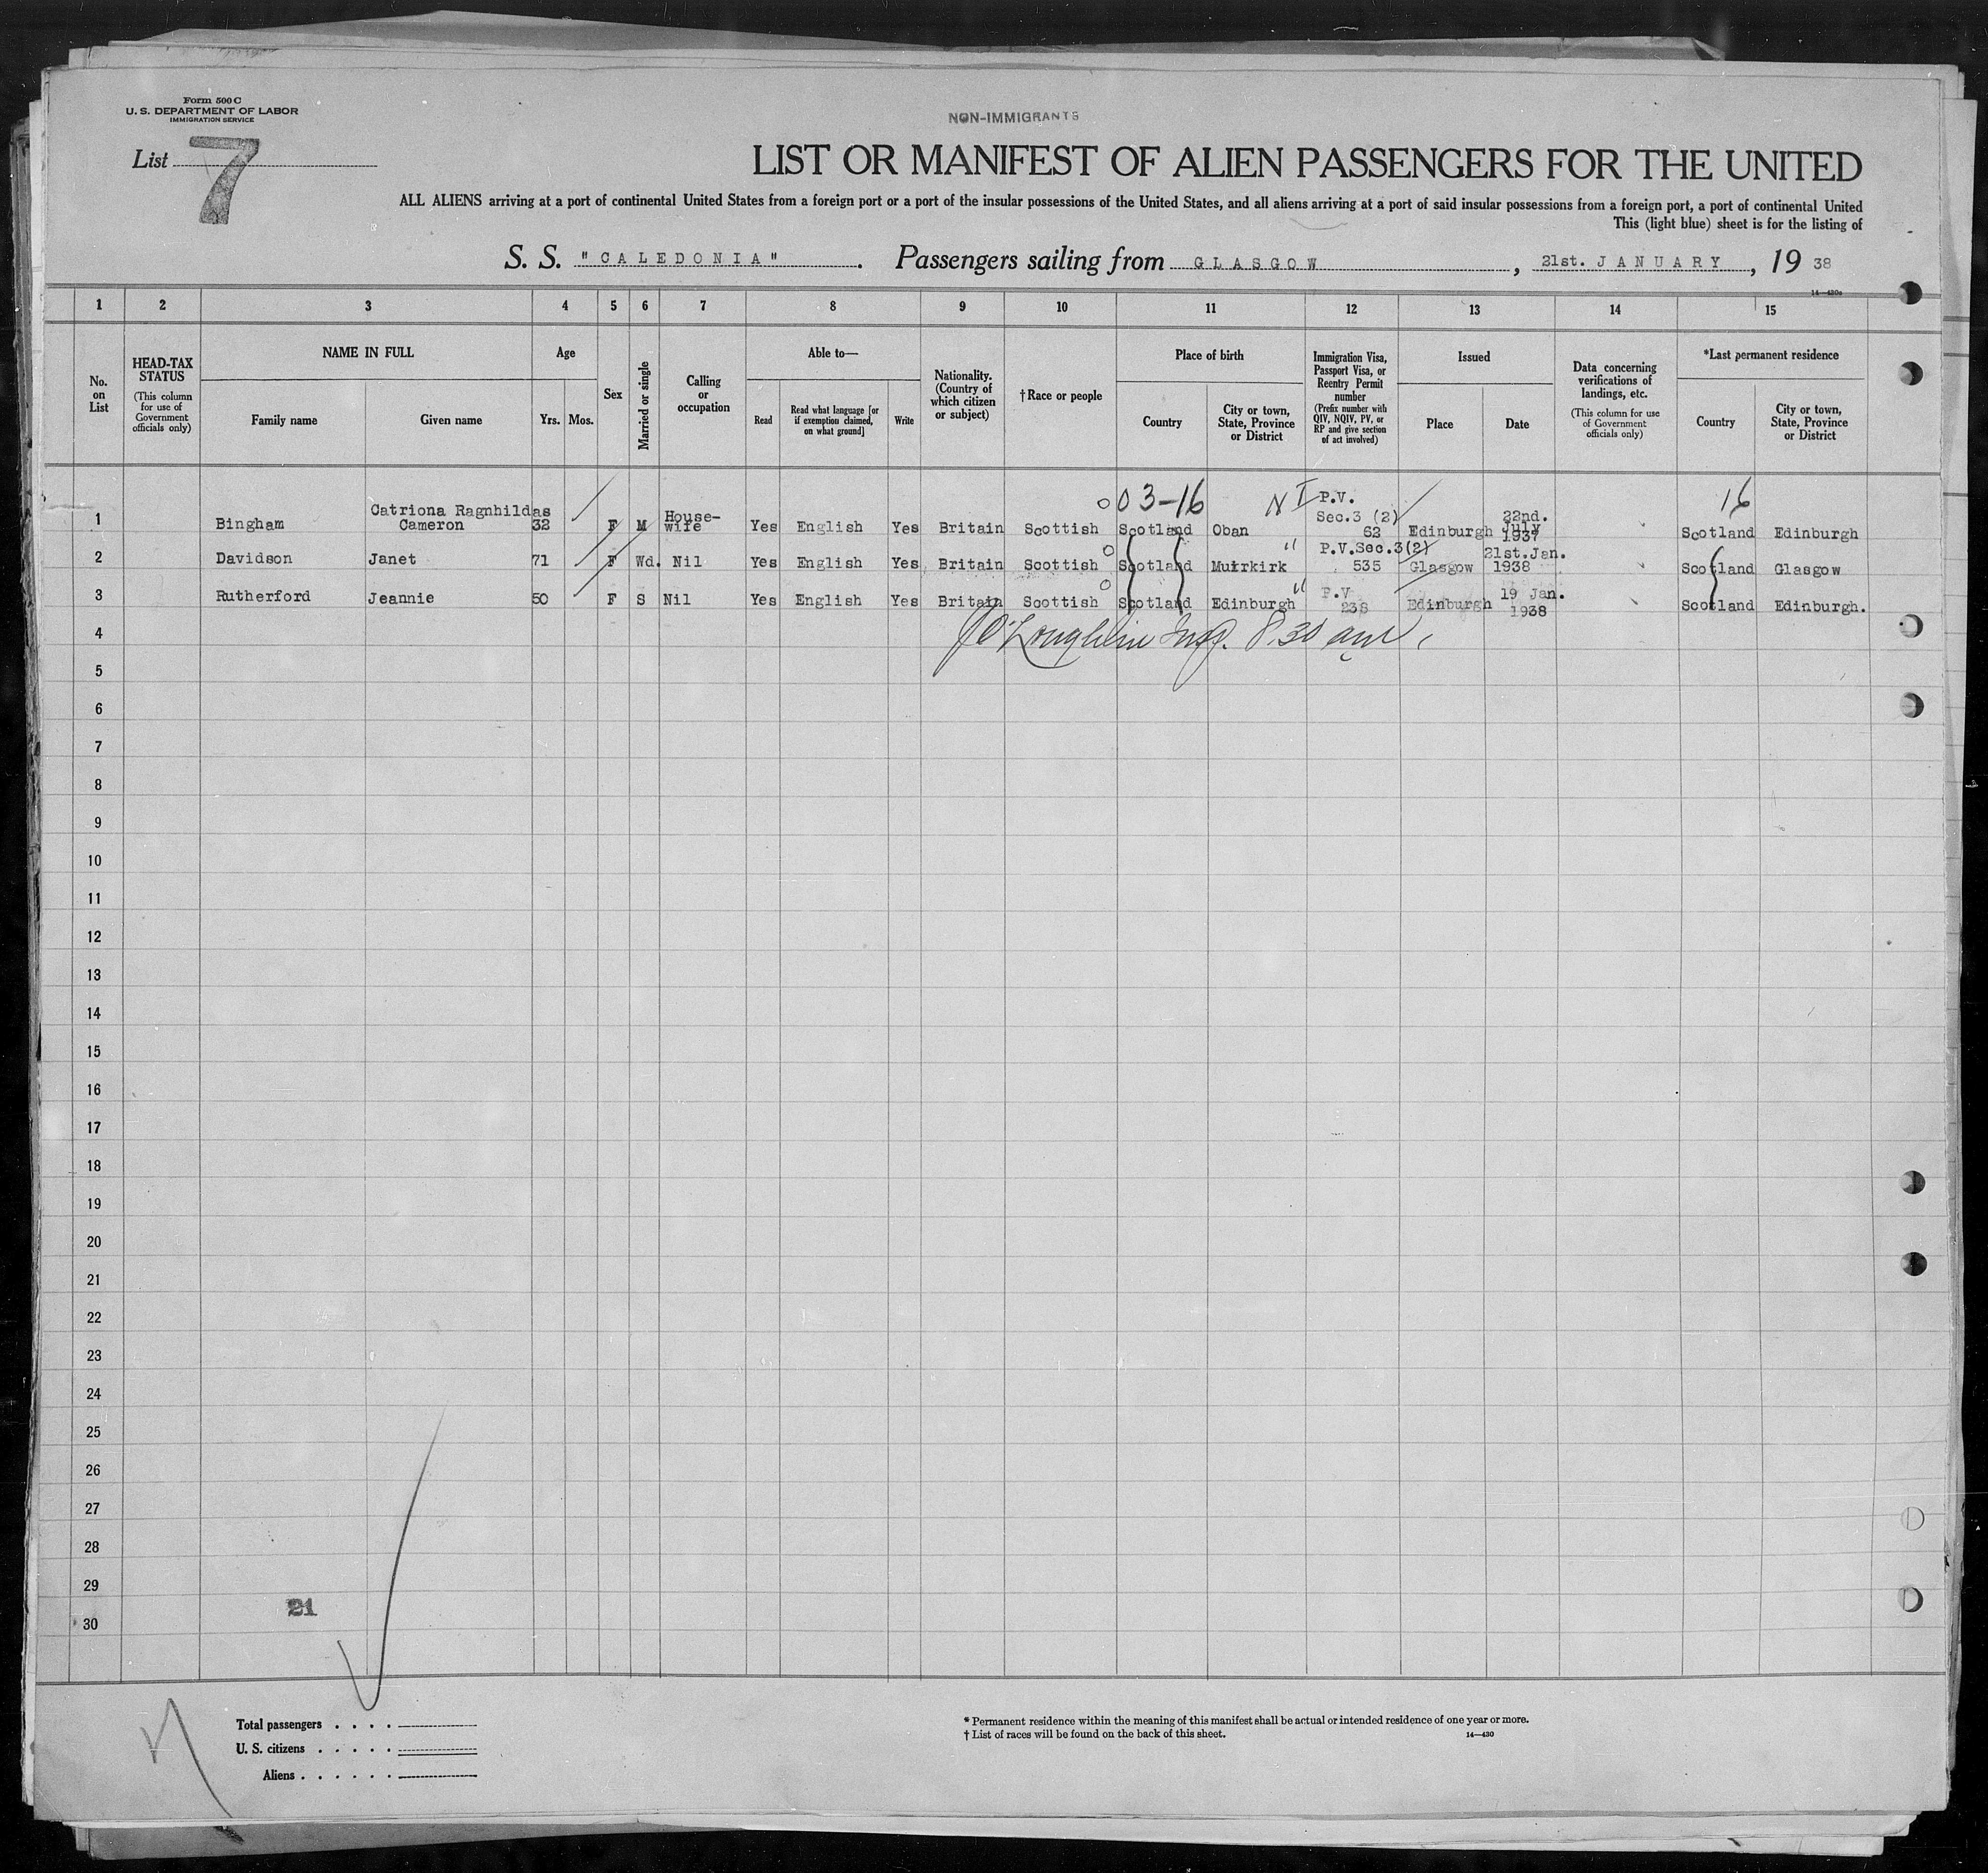 Form 500 C
U. S. DEPARTMENT OF LABOR
IMMIGRATION SERVICE
NON-IMMIGRANTS
List 7
LIST OR MANIFEST OF ALIEN PASSENGERS FOR THE UNITED
ALL ALIENS arriving at a port of continental United States from a foreign port or a port of the insular possessions of the United States, and all aliens arriving at a port of said insular possessions from a foreign port, a port of continental United
This (light blue) sheet is for the listing of
S. S. "CALEDONIA" . Passengers sailing from GLASGOW , 21st. JANUARY , 19 38
14—430a
1 2 3 4 5 6 7 8 9 10 11 12 13 14 15
No. on List
HEAD-TAX STATUS (This column for use of Government officials only)
NAME IN FULL
Family name Given name
Age
Yrs. Mos.
Sex
Married or single
Calling or occupation
Able to—
Read Read what language [or if exemption claimed, on what ground] Write
Nationality. (Country of which citizen or subject)
†Race or people
Place of birth
Country City or town, State, Province or District
Immigration Visa, Passport Visa, or Reentry Permit number (Prefix number with QIV, NQIV, PV, or RP and give section of act involved)
Issued
Place Date
Data concerning verifications of landings, etc. (This column for use of Government officials only)
*Last permanent residence
Country City or town, State, Province or District
03-16 N I 16
1 Bingham Catriona Ragnhildas Cameron 32 F M House-wife Yes English Yes Britain Scottish Scotland Oban P.V. Sec.3 (2) 62 Edinburgh 22nd. July 1937 Scotland Edinburgh
2 Davidson Janet 71 F Wd. Nil Yes English Yes Britain Scottish Scotland Muirkirk " P.V.Sec.3(2) 535 Glasgow 21st.Jan. 1938 Scotland Glasgow
3 Rutherford Jeannie 50 F S Nil Yes English Yes Britain Scottish Scotland Edinburgh " P.V 238 Edinburgh 19 Jan. 1938 Scotland Edinburgh.
4 O'Loughlin Insp. 8.30 am
5
6
7
8
9
10
11
12
13
14
15
16
17
18
19
20
21
22
23
24
25
26
27
28
29
21
30
Total passengers . . . .
U. S. citizens . . . . .
Aliens . . . . . .
* Permanent residence within the meaning of this manifest shall be actual or intended residence of one year or more.
† List of races will be found on the back of this sheet.
14—430